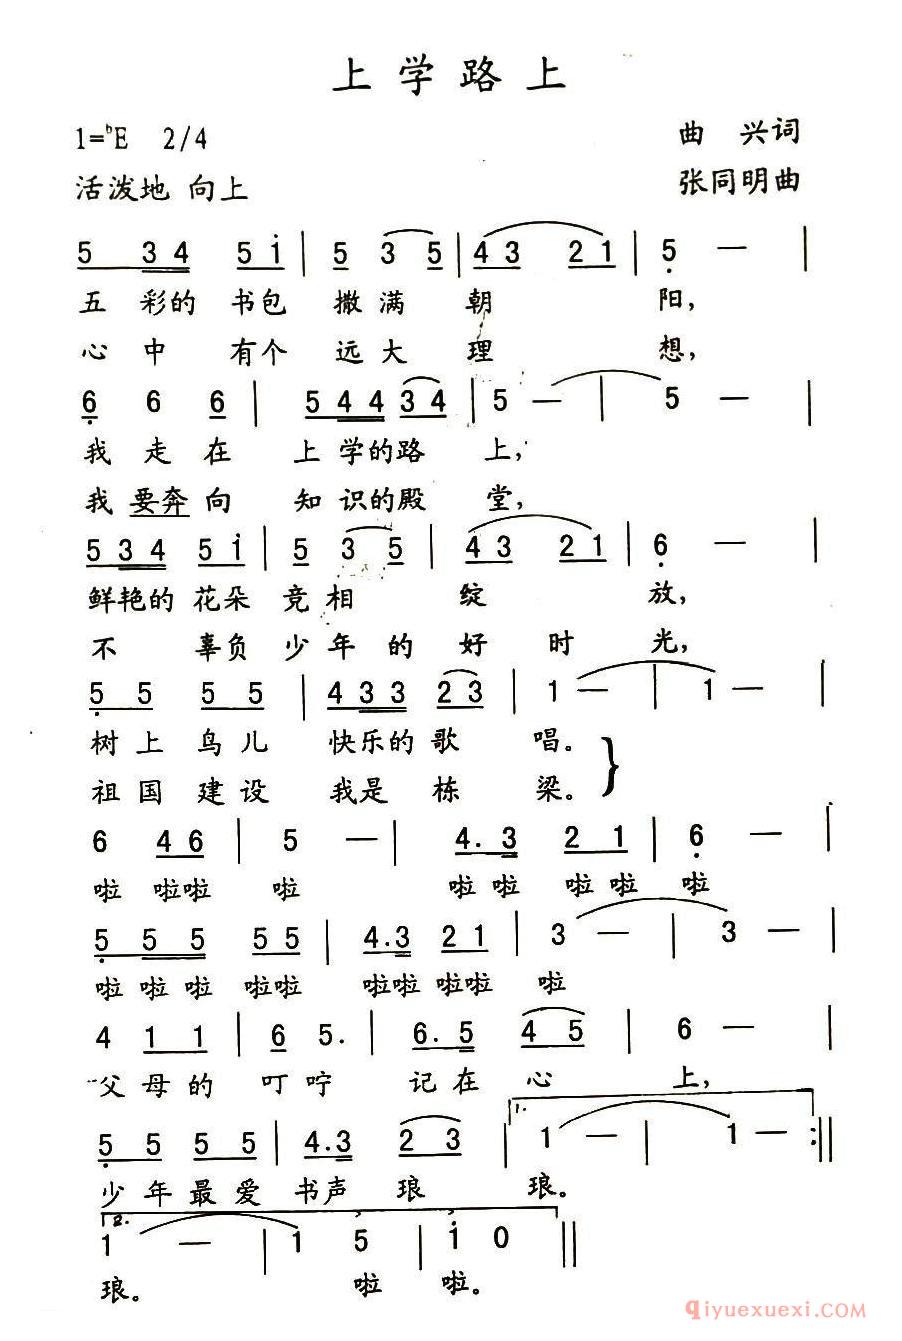 上学路上
1=ᵇE 2/4
曲 兴词
活泼地 向上
张同明曲
5 3 4 5 i | 5 3 5 | 4 3 2 1 | 5 — |
五 彩的 书包 撒 满 朝 阳,
心 中 有个 远 大 理 想,
6 6 6 | 5 4 4 3 4 | 5 — | 5 — |
我 走 在 上 学的路 上,
我 要奔 向 知 识的殿 堂,
5 3 4 5 i | 5 3 5 | 4 3 2 1 | 6 — |
鲜艳的 花朵 竞 相 绽 放,
不 辜负 少 年 的 好 时 光,
5 5 5 5 | 4 3 3 2 3 | 1 — | 1 — |
树 上 鸟 儿 快乐的 歌 唱。
祖 国 建 设 我 是 栋 梁。
6 4 6 | 5 — | 4. 3 2 1 | 6 — |
啦 啦啦 啦 啦 啦 啦 啦 啦
5 5 5 5 5 | 4. 3 2 1 | 3 — | 3 — |
啦 啦 啦 啦啦 啦啦 啦啦 啦
4 1 1 | 6 5. | 6. 5 4 5 | 6 — |
父 母 的 叮 咛 记 在 心 上,
1.
5 5 5 5 | 4. 3 2 3 | 1 — | 1 — :||
少 年 最 爱 书声 琅 琅。
2.
1 — | 1 5 | i 0 ||
琅。 啦 啦。
qiyuexuexi.COM